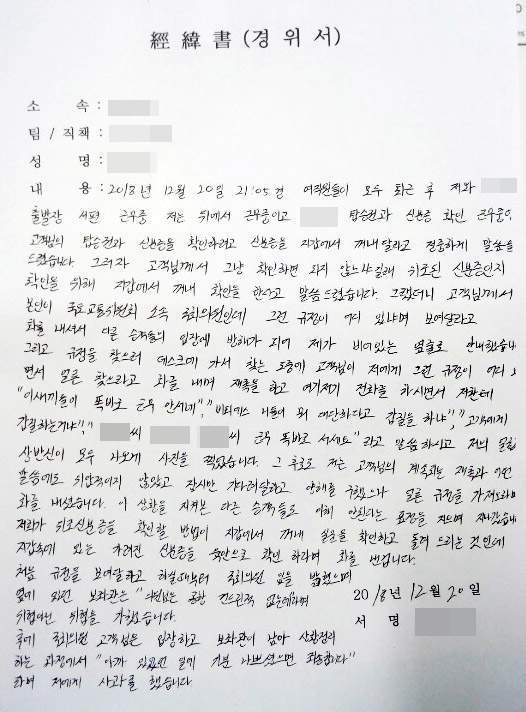 經緯書 (경위서)
소 속 :
팀 / 직책 :
성 명 :
내 용 : 2018년 12월 20일 21:05경 여직원들이 모두 퇴근 후 저와
출발장 서편 근무중 저는 뒤에서 근무중이고 탑승권과 신분증 확인 근무중,
고객님의 탑승권과 신분증을 확인하려고 신분증을 지갑에서 꺼내달라고 정중하게 말씀을
드렸습니다. 그러자 고객님께서 그냥 확인하면 되지 않느냐길래 위조된 신분증인지
확인을 위해 지갑에서 꺼내 확인을 한다고 말씀드렸습니다. 그랬더니 고객님께서
본인이 국토교통위원회 소속 국회의원인데 그런 규정이 어디 있냐며 보여달라고
화를 내셔서 다른 승객들의 입장에 방해가 되어 제가 비어있는 옆쪽으로 안내했습니
그리고 규정을 찾으러 데스크에 가서 찾는 도중에 고객님이 저에게 그런 규정이 어디
면서 얼른 찾으라고 화를 내며 재촉을 하고 여기저기 전화를 하시면서 저한테
"이새끼들이 똑바로 근무 안서네", "너희들이 뭐 대단하다고 갑질을 하냐", "고객에게
갑질하는거냐", " 씨 씨 근무 똑바로 서세요" 라고 말씀하시고 저의 얼굴
상반신이 모두 나오게 사진을 찍었습니다. 그 후로도 저는 고객님의 계속되는 재촉과
말씀에도 잠시만 기다려달라고 양해를 구했으나 얼른 규정을 가져오라며
화를 내셨습니다. 이 상황을 지켜본 다른 승객들도 이해 안된다는 표정을 지으며 지나갔습니
저희가 위조신분증을 확인할 방법이 지갑에서 꺼내 확인하고 돌려 드리는 것인데
지갑속에 있는 가려진 신분증을 육안으로 확인 하라며 화를 냅니다.
처음 규정을 보여달라고 하실때부터 국회의원 임을 밝혔으며
옆에 있던 보좌관은 공항 건드린적 없는데라며
위협아닌 위협을 가했습니다.
후에 국회의원 고객님은 입장하고 보좌관이 남아 상황정리
하는 과정에서 "아까 있었던 일에 기분 나쁘셨으면 죄송합니다"
하며 저에게 사과를 했습니다
2018년 12월 20일
서 명